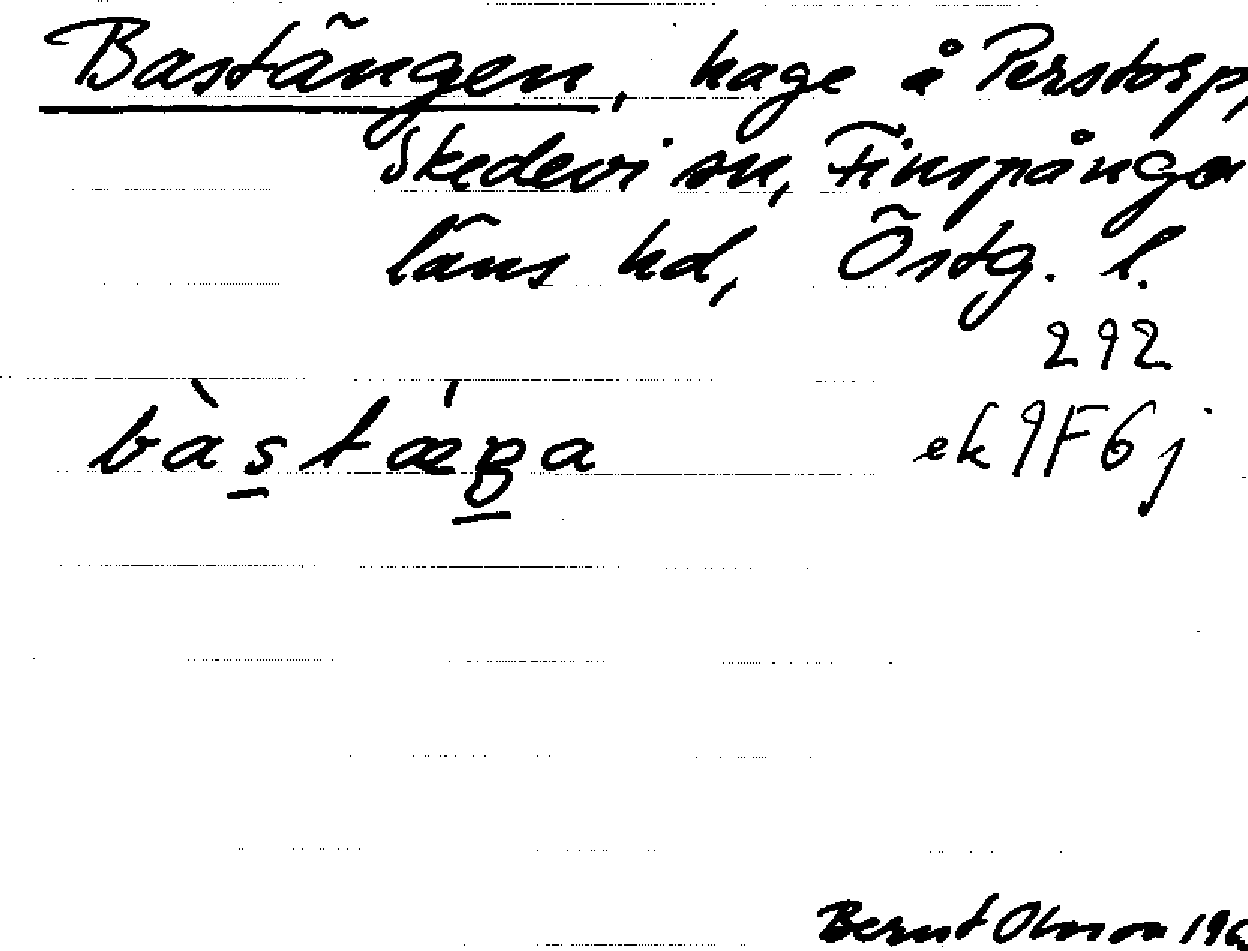 Bastängen, hage å Perstorp,
Skedevi sn, Finspånga
läns hd, Östg. l.
292
bàstæŋa ek 9F6j
Bernt Olsson 196